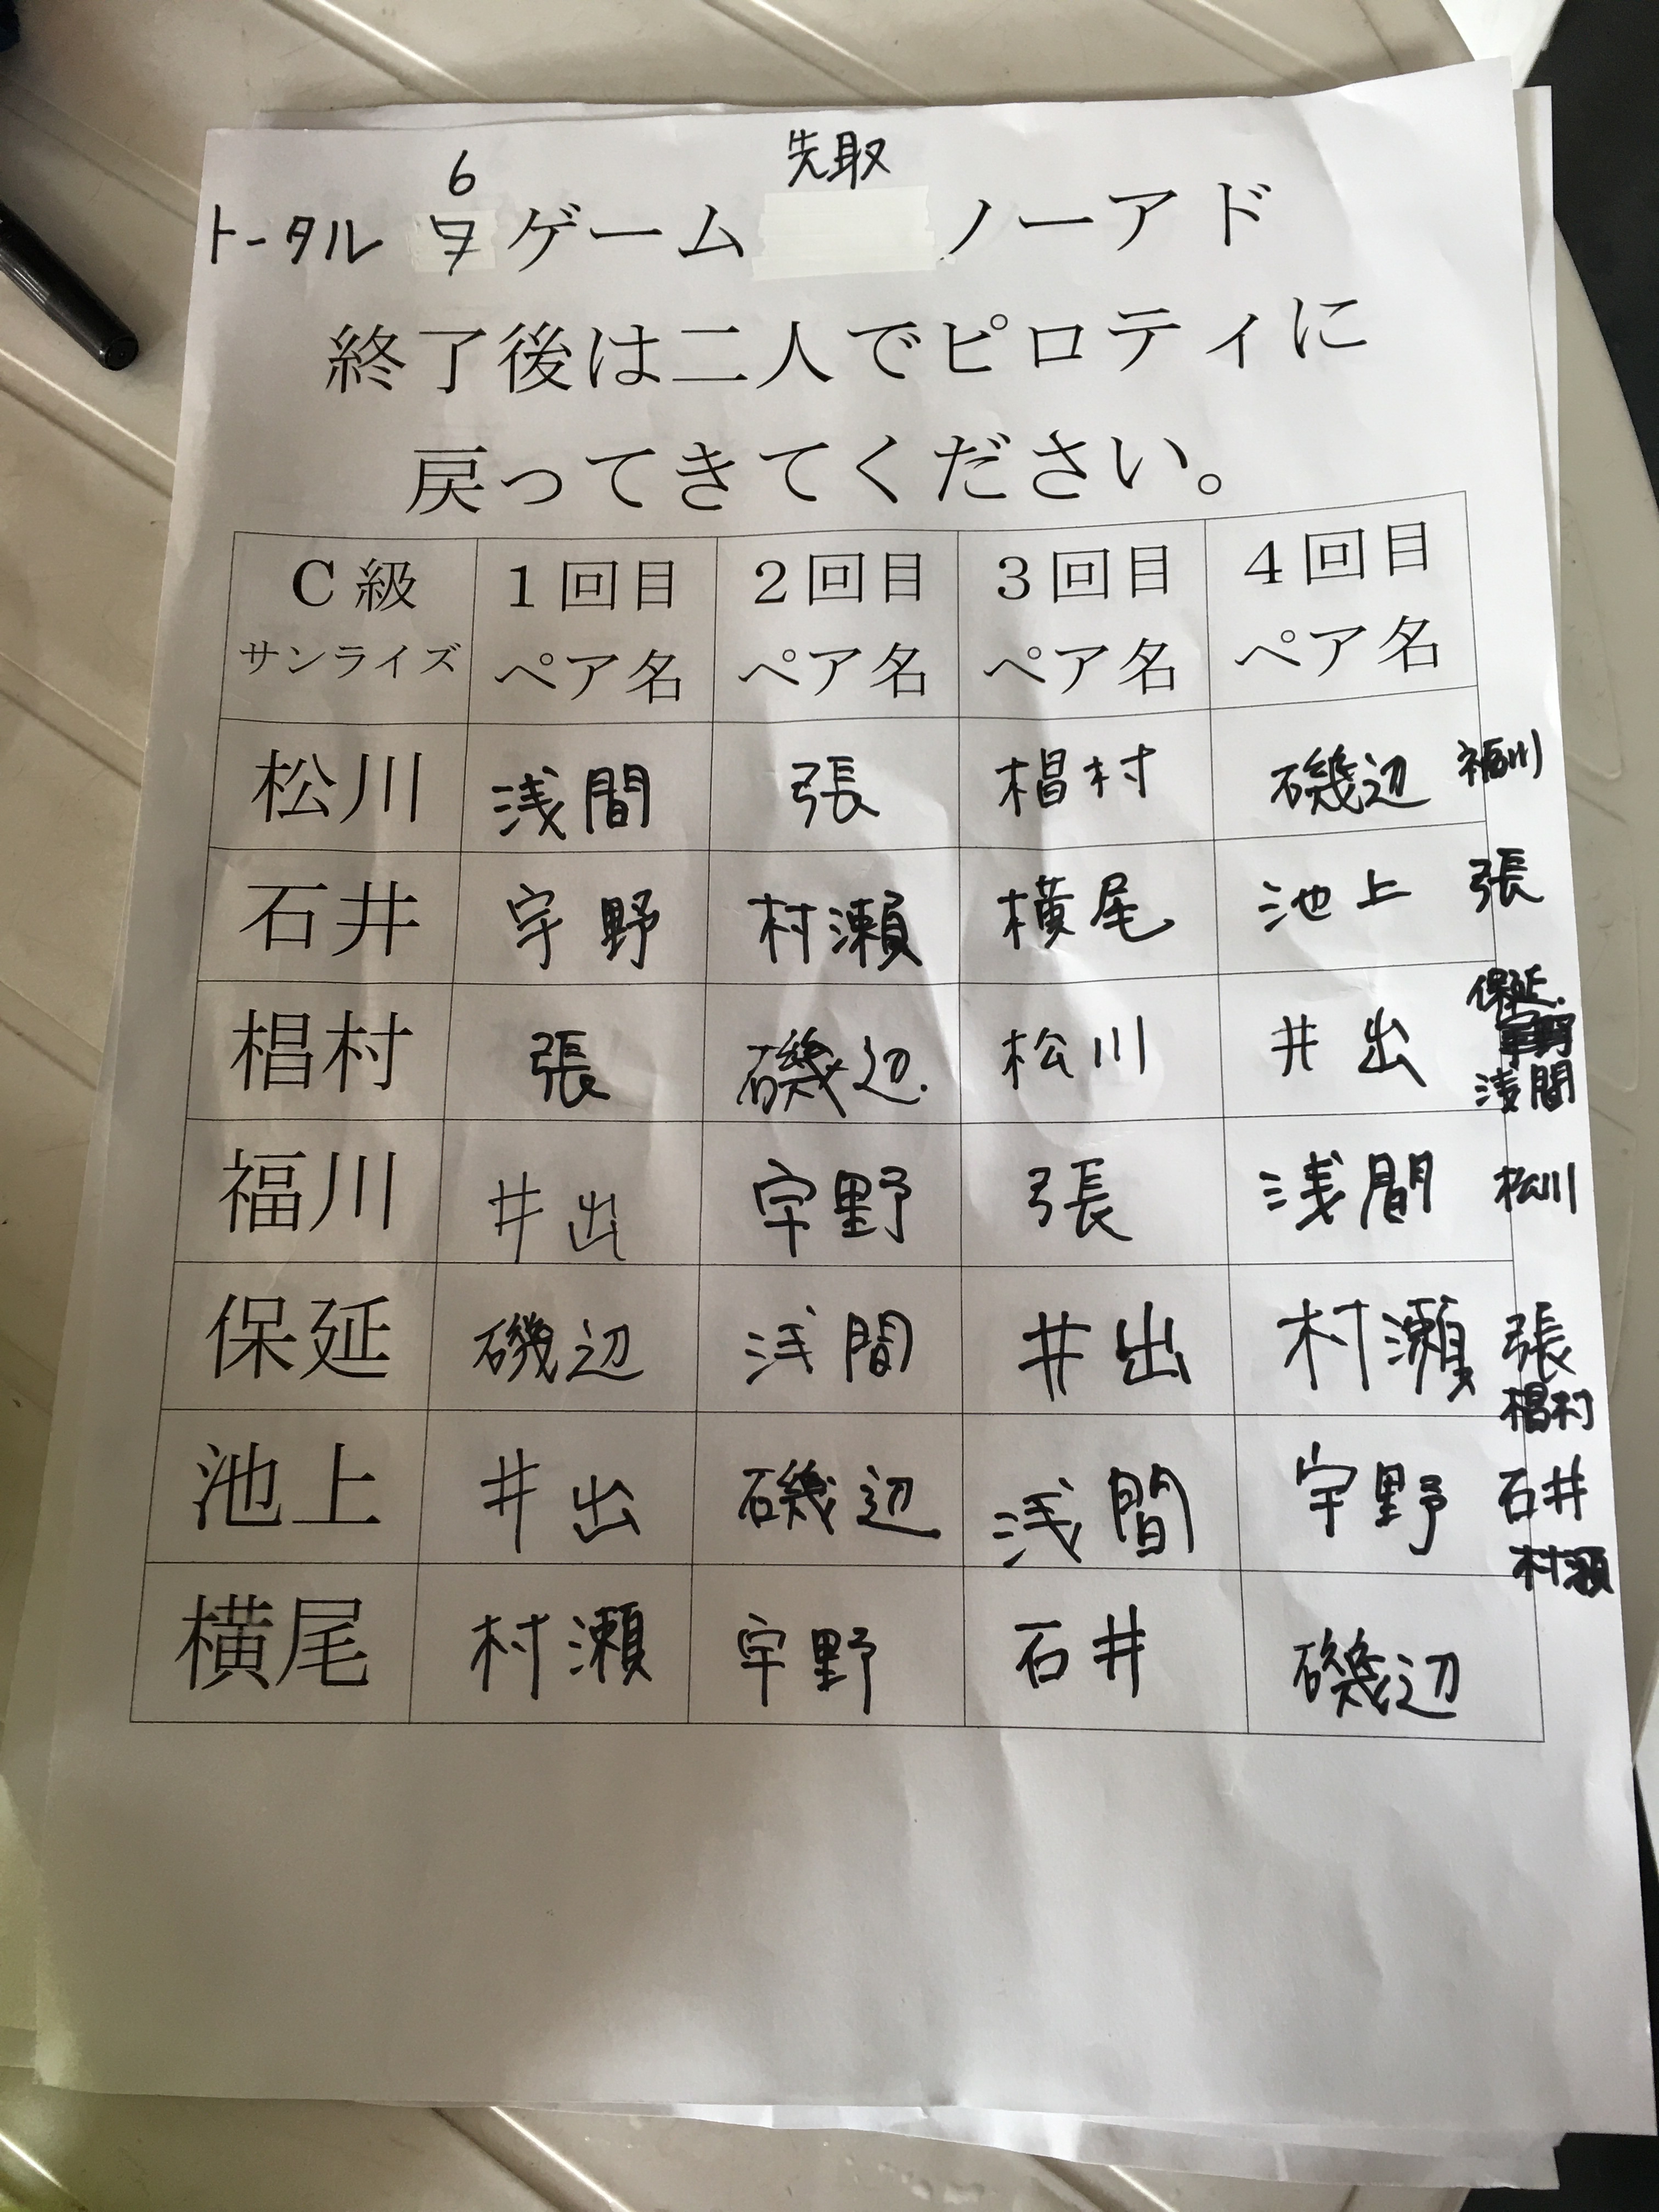 6 先取
トータル 7 ゲーム ノーアド
終了後は二人でピロティに
戻ってきてください。
C級 1回目 2回目 3回目 4回目
サンライズ ペア名 ペア名 ペア名 ペア名
松川 浅間 張 椙村 磯辺 福川
石井 宇野 村瀬 横尾 池上 張
保延.
椙村 張 磯辺. 松川 井出
浅間
福川 井出 宇野 張 浅間 松川
保延 磯辺 浅間 井出 村瀬 張
椙村
池上 井出 磯辺 浅間 宇野 石井
村瀬
横尾 村瀬 宇野 石井 磯辺